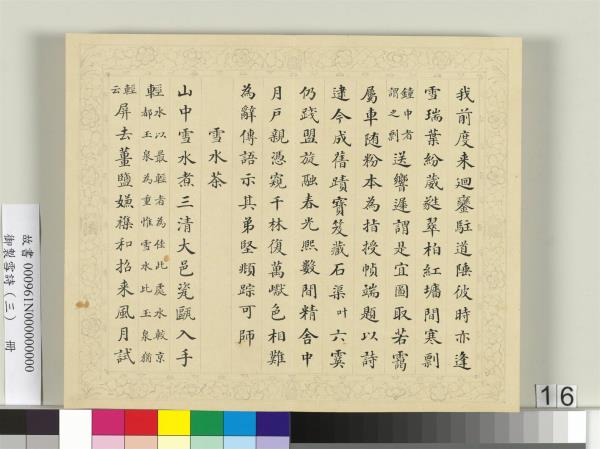 我前度來迴鑾駐道陲彼時亦逢
雪瑞葉紛葳蕤翠柏紅墻間寒剽
鐘中者
謂之剽
送響遲謂是宜圖取若霱
屬車隨粉本為指授幀端題以詩
逮今成舊蹟寶笈藏石渠叶六霙
仍踐盟旋融春光熙數間精舍中
月戶親憑窺千林復萬巘色相難
為辭傳語示其弟堅頻踪可師
雪水茶
山中雪水煮三清大邑瓷甌入手
輕
水以最輕者為佳此處水較京
都玉泉為重惟雪水比玉泉猶
輕
云
屏去薑鹽嫌襍和招來風月試
故書000961N000000000
御製雪詩(三) 冊
16